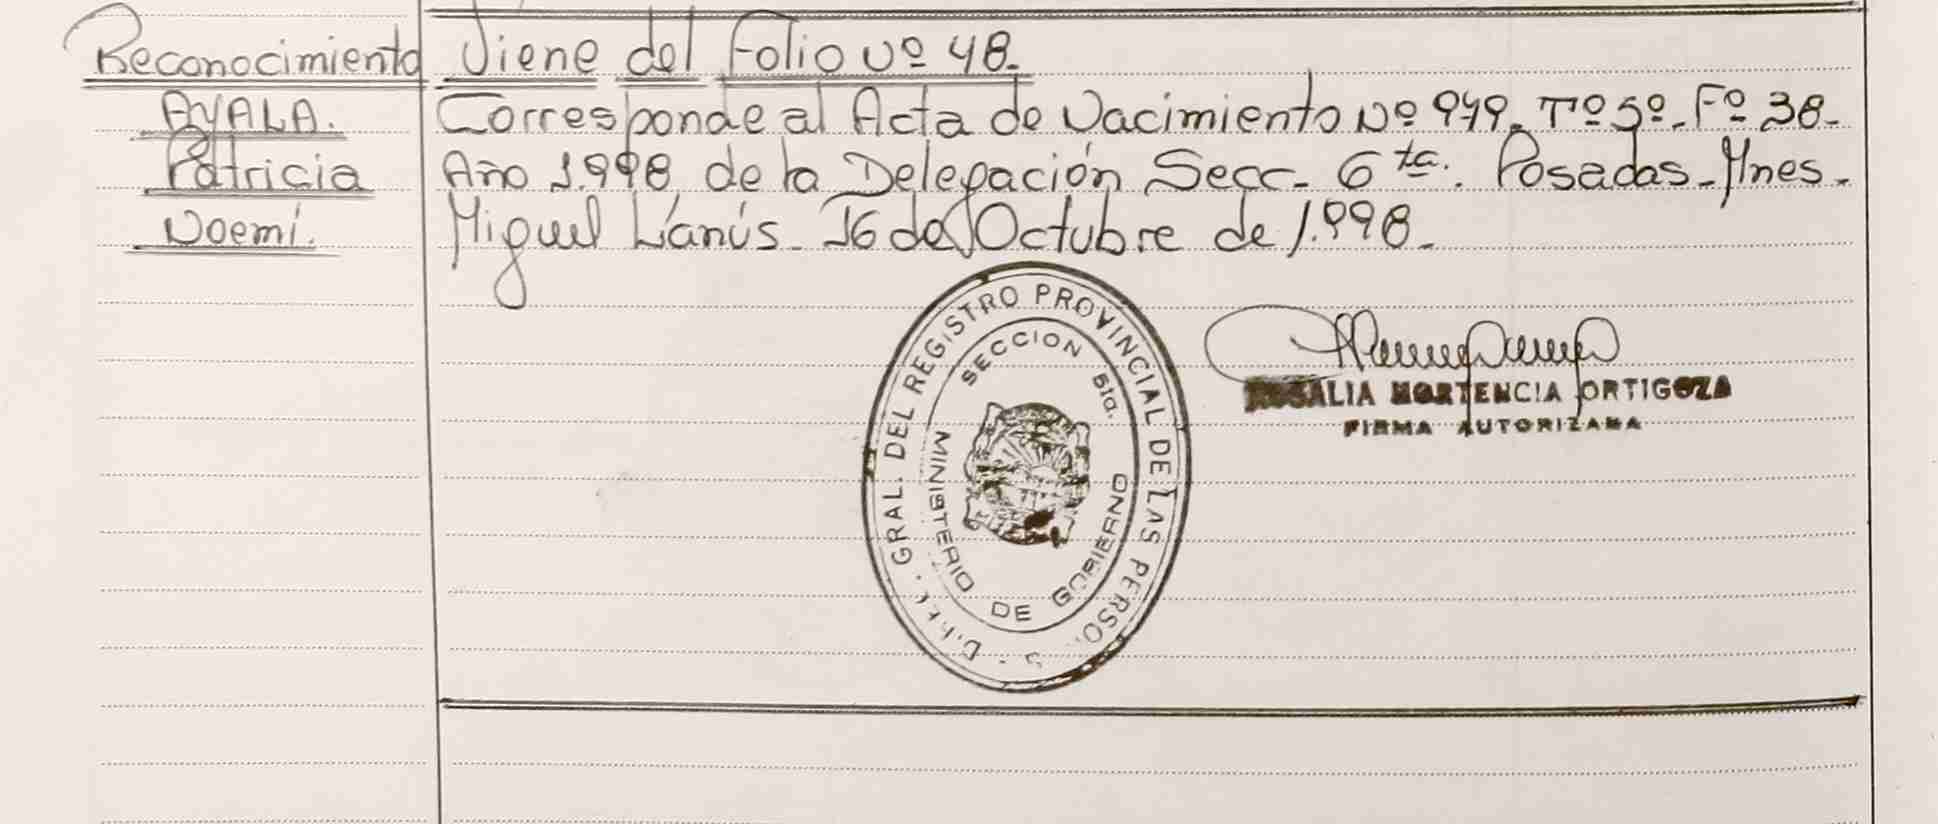 Reconocimiento
AYALA.
Patricia
Noemí.
Viene del Folio Nº 48.
Corresponde al Acta de Nacimiento Nº 949. Tº 5º. Fº 38.
Año 1.998, de la Delegación Secc. 6ta. Posadas-Mnes.
Miguel Lanús. 16 de Octubre de 1.998.
GRAL. DEL REGISTRO PROVINCIAL DE LAS PERSO.
SECCION 5ta.
MINISTERIO DE GOBIERNO
ROSALIA HORTENCIA ORTIGOZA
FIRMA AUTORIZADA